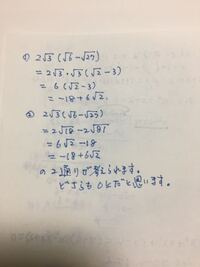 ① 2√3(√6-√27)
= 2√3・√3(√2-3)
= 6(√2-3)
= -18+6√2.
② 2√3(√6-√27)
= 2√18-2√81
= 6√2-18
= -18+6√2
の2通りが考えられます。
どちらもOKだと思います。